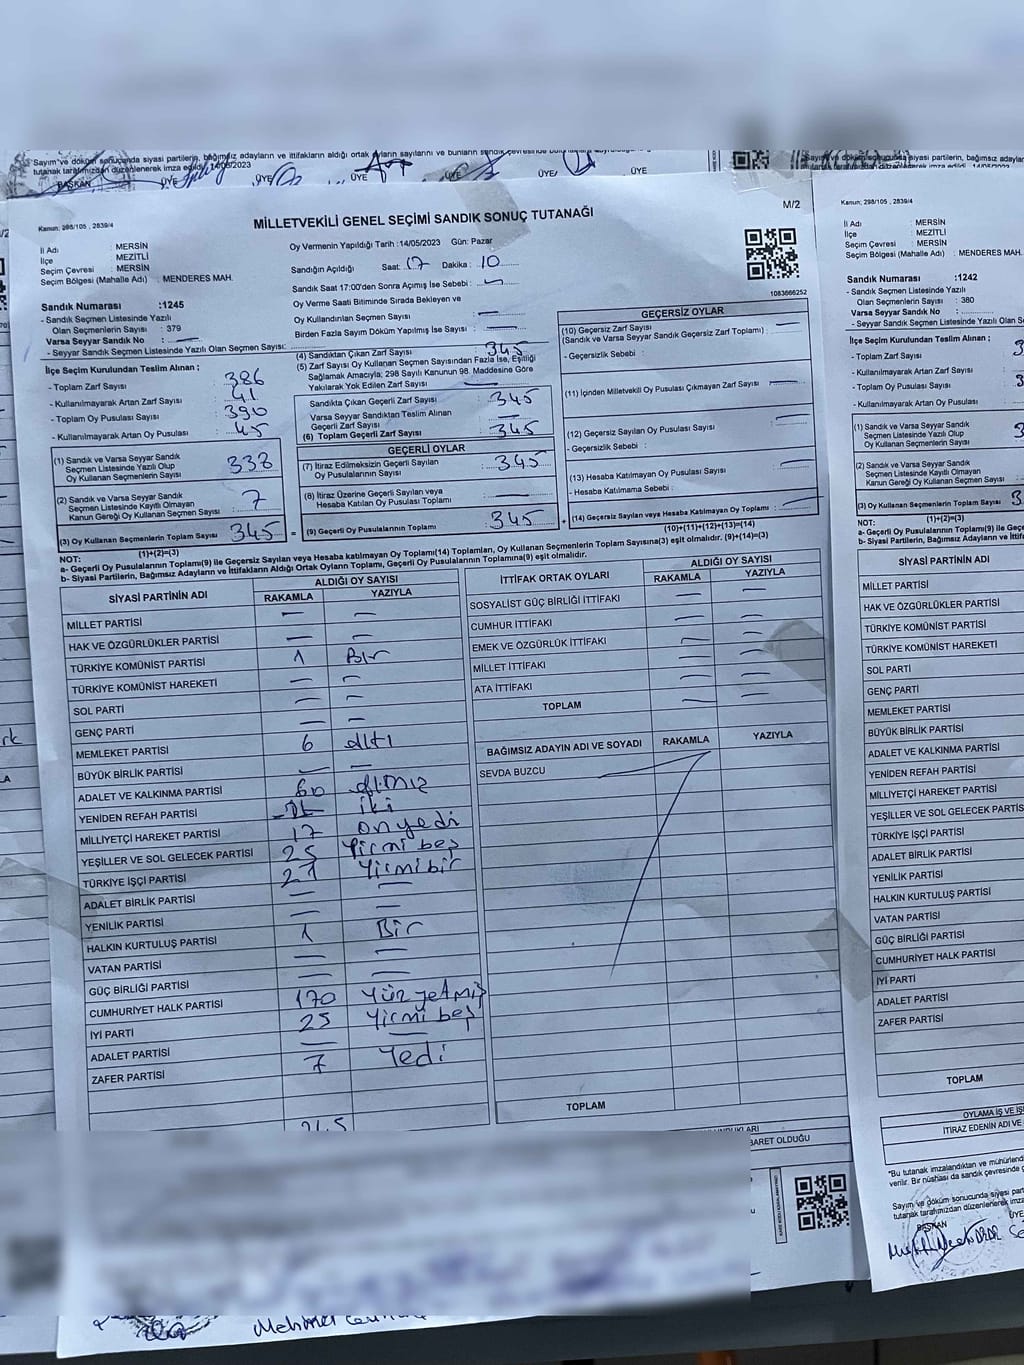 Sayım ve döküm sonucunda siyasi partilerin, bağımsız adayların ve ittifakların aldığı ortak oyların sayılarını ve bunların sandık çevresinde
tutanak tarafımızdan düzenlenerek imza edildi. 14/05/2023
BAŞKAN ÜYE ÜYE ÜYE ÜYE ÜYE
Kanun; 298/105 , 2839/4
MİLLETVEKİLİ GENEL SEÇİMİ SANDIK SONUÇ TUTANAĞI
M/2
İl Adı : MERSİN
İlçe : MEZİTLİ
Seçim Çevresi : MERSİN
Seçim Bölgesi (Mahalle Adı) : MENDERES MAH.
Oy Vermenin Yapıldığı Tarih :14/05/2023 Gün: Pazar
Sandığın Açıldığı Saat: 17 Dakika : 10
Sandık Saat 17:00'den Sonra Açılmış İse Sebebi :
Oy Verme Saati Bitiminde Sırada Bekleyen ve
Oy Kullandırılan Seçmen Sayısı : —
Birden Fazla Sayım Döküm Yapılmış İse Sayısı : —
1083666252
Sandık Numarası :1245
- Sandık Seçmen Listesinde Yazılı
Olan Seçmenlerin Sayısı : 379
Varsa Seyyar Sandık No : —
- Seyyar Sandık Seçmen Listesinde Yazılı Olan Seçmen Sayısı:
İlçe Seçim Kurulundan Teslim Alınan ;
- Toplam Zarf Sayısı : 386
- Kullanılmayarak Artan Zarf Sayısı : 41
- Toplam Oy Pusulası Sayısı : 390
- Kullanılmayarak Artan Oy Pusulası : 45
(1) Sandık ve Varsa Seyyar Sandık
Seçmen Listesinde Yazılı Olup
Oy Kullanan Seçmenlerin Sayısı : 338
(2) Sandık ve Varsa Seyyar Sandık
Seçmen Listesinde Kayıtlı Olmayan
Kanun Gereği Oy Kullanan Seçmen Sayısı : 7
(3) Oy Kullanan Seçmenlerin Toplam Sayısı : 345
(1)+(2)=(3)
(4) Sandıktan Çıkan Zarf Sayısı : 345
(5) Zarf Sayısı Oy Kullanan Seçmen Sayısından Fazla İse, Eşitliği
Sağlamak Amacıyla; 298 Sayılı Kanunun 98. Maddesine Göre
Yakılarak Yok Edilen Zarf Sayısı : —
Sandıkta Çıkan Geçerli Zarf Sayısı : 345
Varsa Seyyar Sandıktan Teslim Alınan
Geçerli Zarf Sayısı : —
(6) Toplam Geçerli Zarf Sayısı : 345
GEÇERLİ OYLAR
(7) İtiraz Edilmeksizin Geçerli Sayılan
Oy Pusulalarının Sayısı : 345
(8) İtiraz Üzerine Geçerli Sayılan veya
Hesaba Katılan Oy Pusulası Toplamı : —
= (9) Geçerli Oy Pusulalarının Toplamı : 345
GEÇERSİZ OYLAR
(10) Geçersiz Zarf Sayısı : —
(Sandık ve Varsa Seyyar Sandık Geçersiz Zarf Toplamı)
- Geçersizlik Sebebi :
(11) İçinden Milletvekili Oy Pusulası Çıkmayan Zarf Sayısı : —
(12) Geçersiz Sayılan Oy Pusulası Sayısı : —
-Geçersizlik Sebebi :
(13) Hesaba Katılmayan Oy Pusulası Sayısı : —
- Hesaba Katılmama Sebebi :
+ (14) Geçersiz Sayılan veya Hesaba Katılmayan Oy Toplamı : —
(10)+(11)+(12)+(13)=(14)
NOT:
a- Geçerli Oy Pusulalarının Toplamı(9) ile Geçersiz Sayılan veya Hesaba katılmayan Oy Toplamı(14) Toplamları, Oy Kullanan Seçmenlerin Toplam Sayısına(3) eşit olmalıdır. (9)+(14)=(3)
b- Siyasi Partilerin, Bağımsız Adayların ve İttifakların Aldığı Ortak Oyların Toplamı, Geçerli Oy Pusulalarının Toplamına(9) eşit olmalıdır.
SİYASİ PARTİNİN ADI ALDIĞI OY SAYISI
RAKAMLA YAZIYLA
MİLLET PARTİSİ — —
HAK VE ÖZGÜRLÜKLER PARTİSİ — —
TÜRKİYE KOMÜNİST PARTİSİ 1 Bir
TÜRKİYE KOMÜNİST HAREKETİ — —
SOL PARTİ — —
GENÇ PARTİ — —
MEMLEKET PARTİSİ 6 altı
BÜYÜK BİRLİK PARTİSİ — —
ADALET VE KALKINMA PARTİSİ 60 altmış
YENİDEN REFAH PARTİSİ iki
MİLLİYETÇİ HAREKET PARTİSİ 17 onyedi
YEŞİLLER VE SOL GELECEK PARTİSİ 25 Yirmi beş
TÜRKİYE İŞÇİ PARTİSİ 21 Yirmibir
ADALET BİRLİK PARTİSİ — —
YENİLİK PARTİSİ — —
HALKIN KURTULUŞ PARTİSİ 1 Bir
VATAN PARTİSİ — —
GÜÇ BİRLİĞİ PARTİSİ — —
CUMHURİYET HALK PARTİSİ 170 Yüz yetmiş
İYİ PARTİ 25 Yirmi beş
ADALET PARTİSİ — —
ZAFER PARTİSİ 7 Yedi
345
İTTİFAK ORTAK OYLARI ALDIĞI OY SAYISI
RAKAMLA YAZIYLA
SOSYALİST GÜÇ BİRLİĞİ İTTİFAKI — —
CUMHUR İTTİFAKI — —
EMEK VE ÖZGÜRLÜK İTTİFAKI — —
MİLLET İTTİFAKI — —
ATA İTTİFAKI — —
TOPLAM — —
BAĞIMSIZ ADAYIN ADI VE SOYADI RAKAMLA YAZIYLA
SEVDA BUZCU
TOPLAM
BARET OLDUĞU
Mehmet
Sayım ve döküm sonucunda siyasi partilerin, bağımsız adaylar
Kanun; 298/105 , 2839/4
İl Adı : MERSİN
İlçe : MEZİTLİ
Seçim Çevresi : MERSİN
Seçim Bölgesi (Mahalle Adı) : MENDERES MAH.
Sandık Numarası :1242
- Sandık Seçmen Listesinde Yazılı
Olan Seçmenlerin Sayısı : 380
Varsa Seyyar Sandık No :
- Seyyar Sandık Seçmen Listesinde Yazılı Olan S
İlçe Seçim Kurulundan Teslim Alınan ;
- Toplam Zarf Sayısı : 3
- Kullanılmayarak Artan Zarf Sayısı
- Toplam Oy Pusulası Sayısı : 3
- Kullanılmayarak Artan Oy Pusulası
(1) Sandık ve Varsa Seyyar Sandık
Seçmen Listesinde Yazılı Olup
Oy Kullanan Seçmenlerin Sayısı : 3
(2) Sandık ve Varsa Seyyar Sandık
Seçmen Listesinde Kayıtlı Olmayan
Kanun Gereği Oy Kullanan Seçmen Sayısı
(3) Oy Kullanan Seçmenlerin Toplam Sayısı : 3
(1)+(2)=(3)
NOT:
a- Geçerli Oy Pusulalarının Toplamı(9) ile Geçers
b- Siyasi Partilerin, Bağımsız Adayların ve İttifak
SİYASİ PARTİNİN ADI
MİLLET PARTİSİ
HAK VE ÖZGÜRLÜKLER PARTİSİ
TÜRKİYE KOMÜNİST PARTİSİ
TÜRKİYE KOMÜNİST HAREKETİ
SOL PARTİ
GENÇ PARTİ
MEMLEKET PARTİSİ
BÜYÜK BİRLİK PARTİSİ
ADALET VE KALKINMA PARTİSİ
YENİDEN REFAH PARTİSİ
MİLLİYETÇİ HAREKET PARTİSİ
YEŞİLLER VE SOL GELECEK PARTİSİ
TÜRKİYE İŞÇİ PARTİSİ
ADALET BİRLİK PARTİSİ
YENİLİK PARTİSİ
HALKIN KURTULUŞ PARTİSİ
VATAN PARTİSİ
GÜÇ BİRLİĞİ PARTİSİ
CUMHURİYET HALK PARTİSİ
İYİ PARTİ
ADALET PARTİSİ
ZAFER PARTİSİ
TOPLAM
OYLAMA İŞ VE İŞ
İTİRAZ EDENİN ADI VE
*Bu tutanak imzalandıktan ve mühürlend
verilir. Bir nüshası da sandık çevresinde
Sayım ve döküm sonucunda siyasi part
tutanak tarafımızdan düzenlenerek imza
BAŞKAN ÜYE